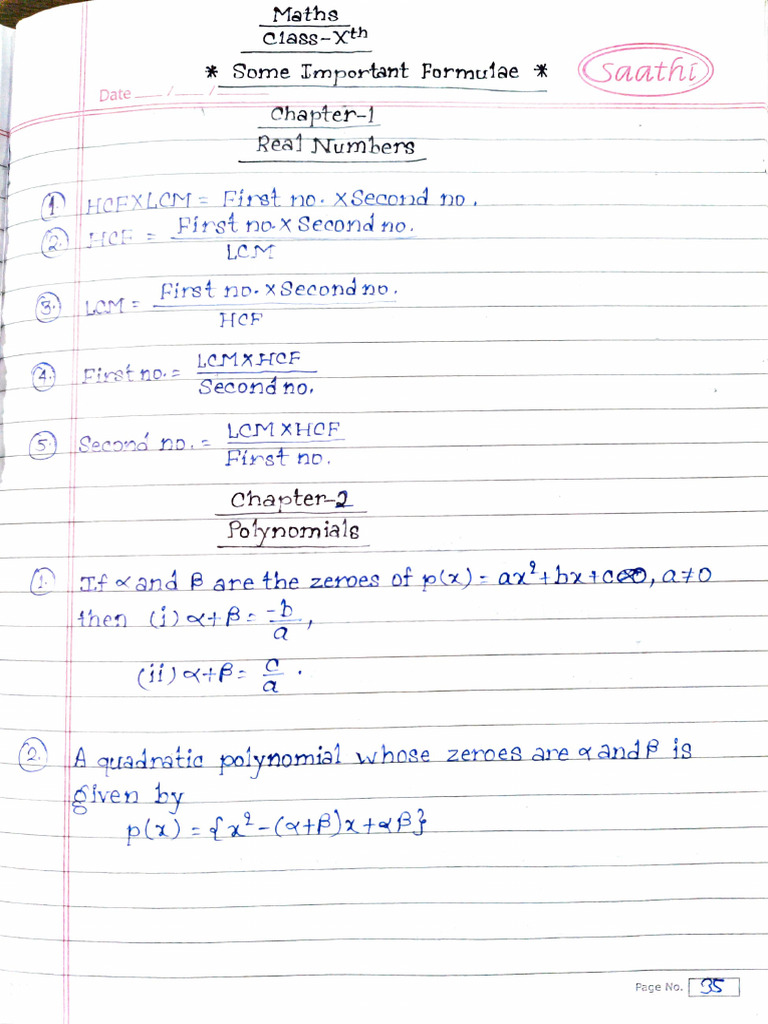 Maths
Class-Xth
* Some Important Formulae *
Saathi
Date ___/___/___
Chapter-1
Real Numbers
1. HCF×LCM = First no. ×Second no.
2. HCF = First no.×Second no.
LCM
3. LCM = First no.×Second no.
HCF
4. First no. = LCM×HCF
Second no.
5. Second no. = LCM×HCF
First no.
Chapter-2
Polynomials
1. If α and β are the zeroes of p(x) = ax²+bx+c, a≠0
then (i) α+β = -b/a,
(ii) α+β = c/a .
2. A quadratic polynomial whose zeroes are α and β is
given by
p(x) = {x²-(α+β)x+αβ}
Page No. 35